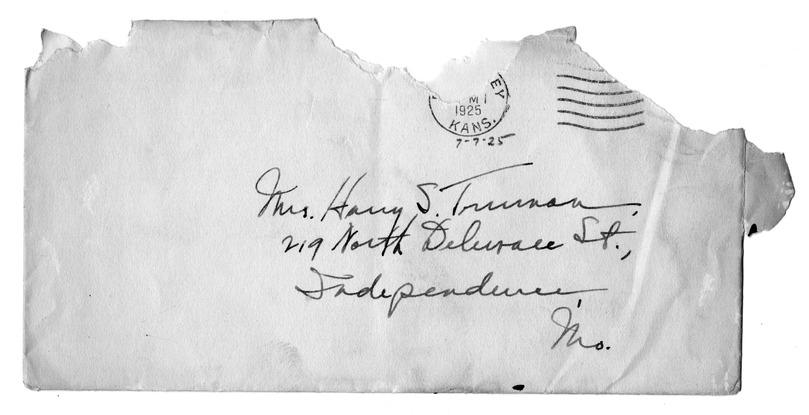 EY
M
1925
KANS.
7-7-25
Mrs. Harry S. Truman,
219 North Delaware St.,
Independence,
Mo.